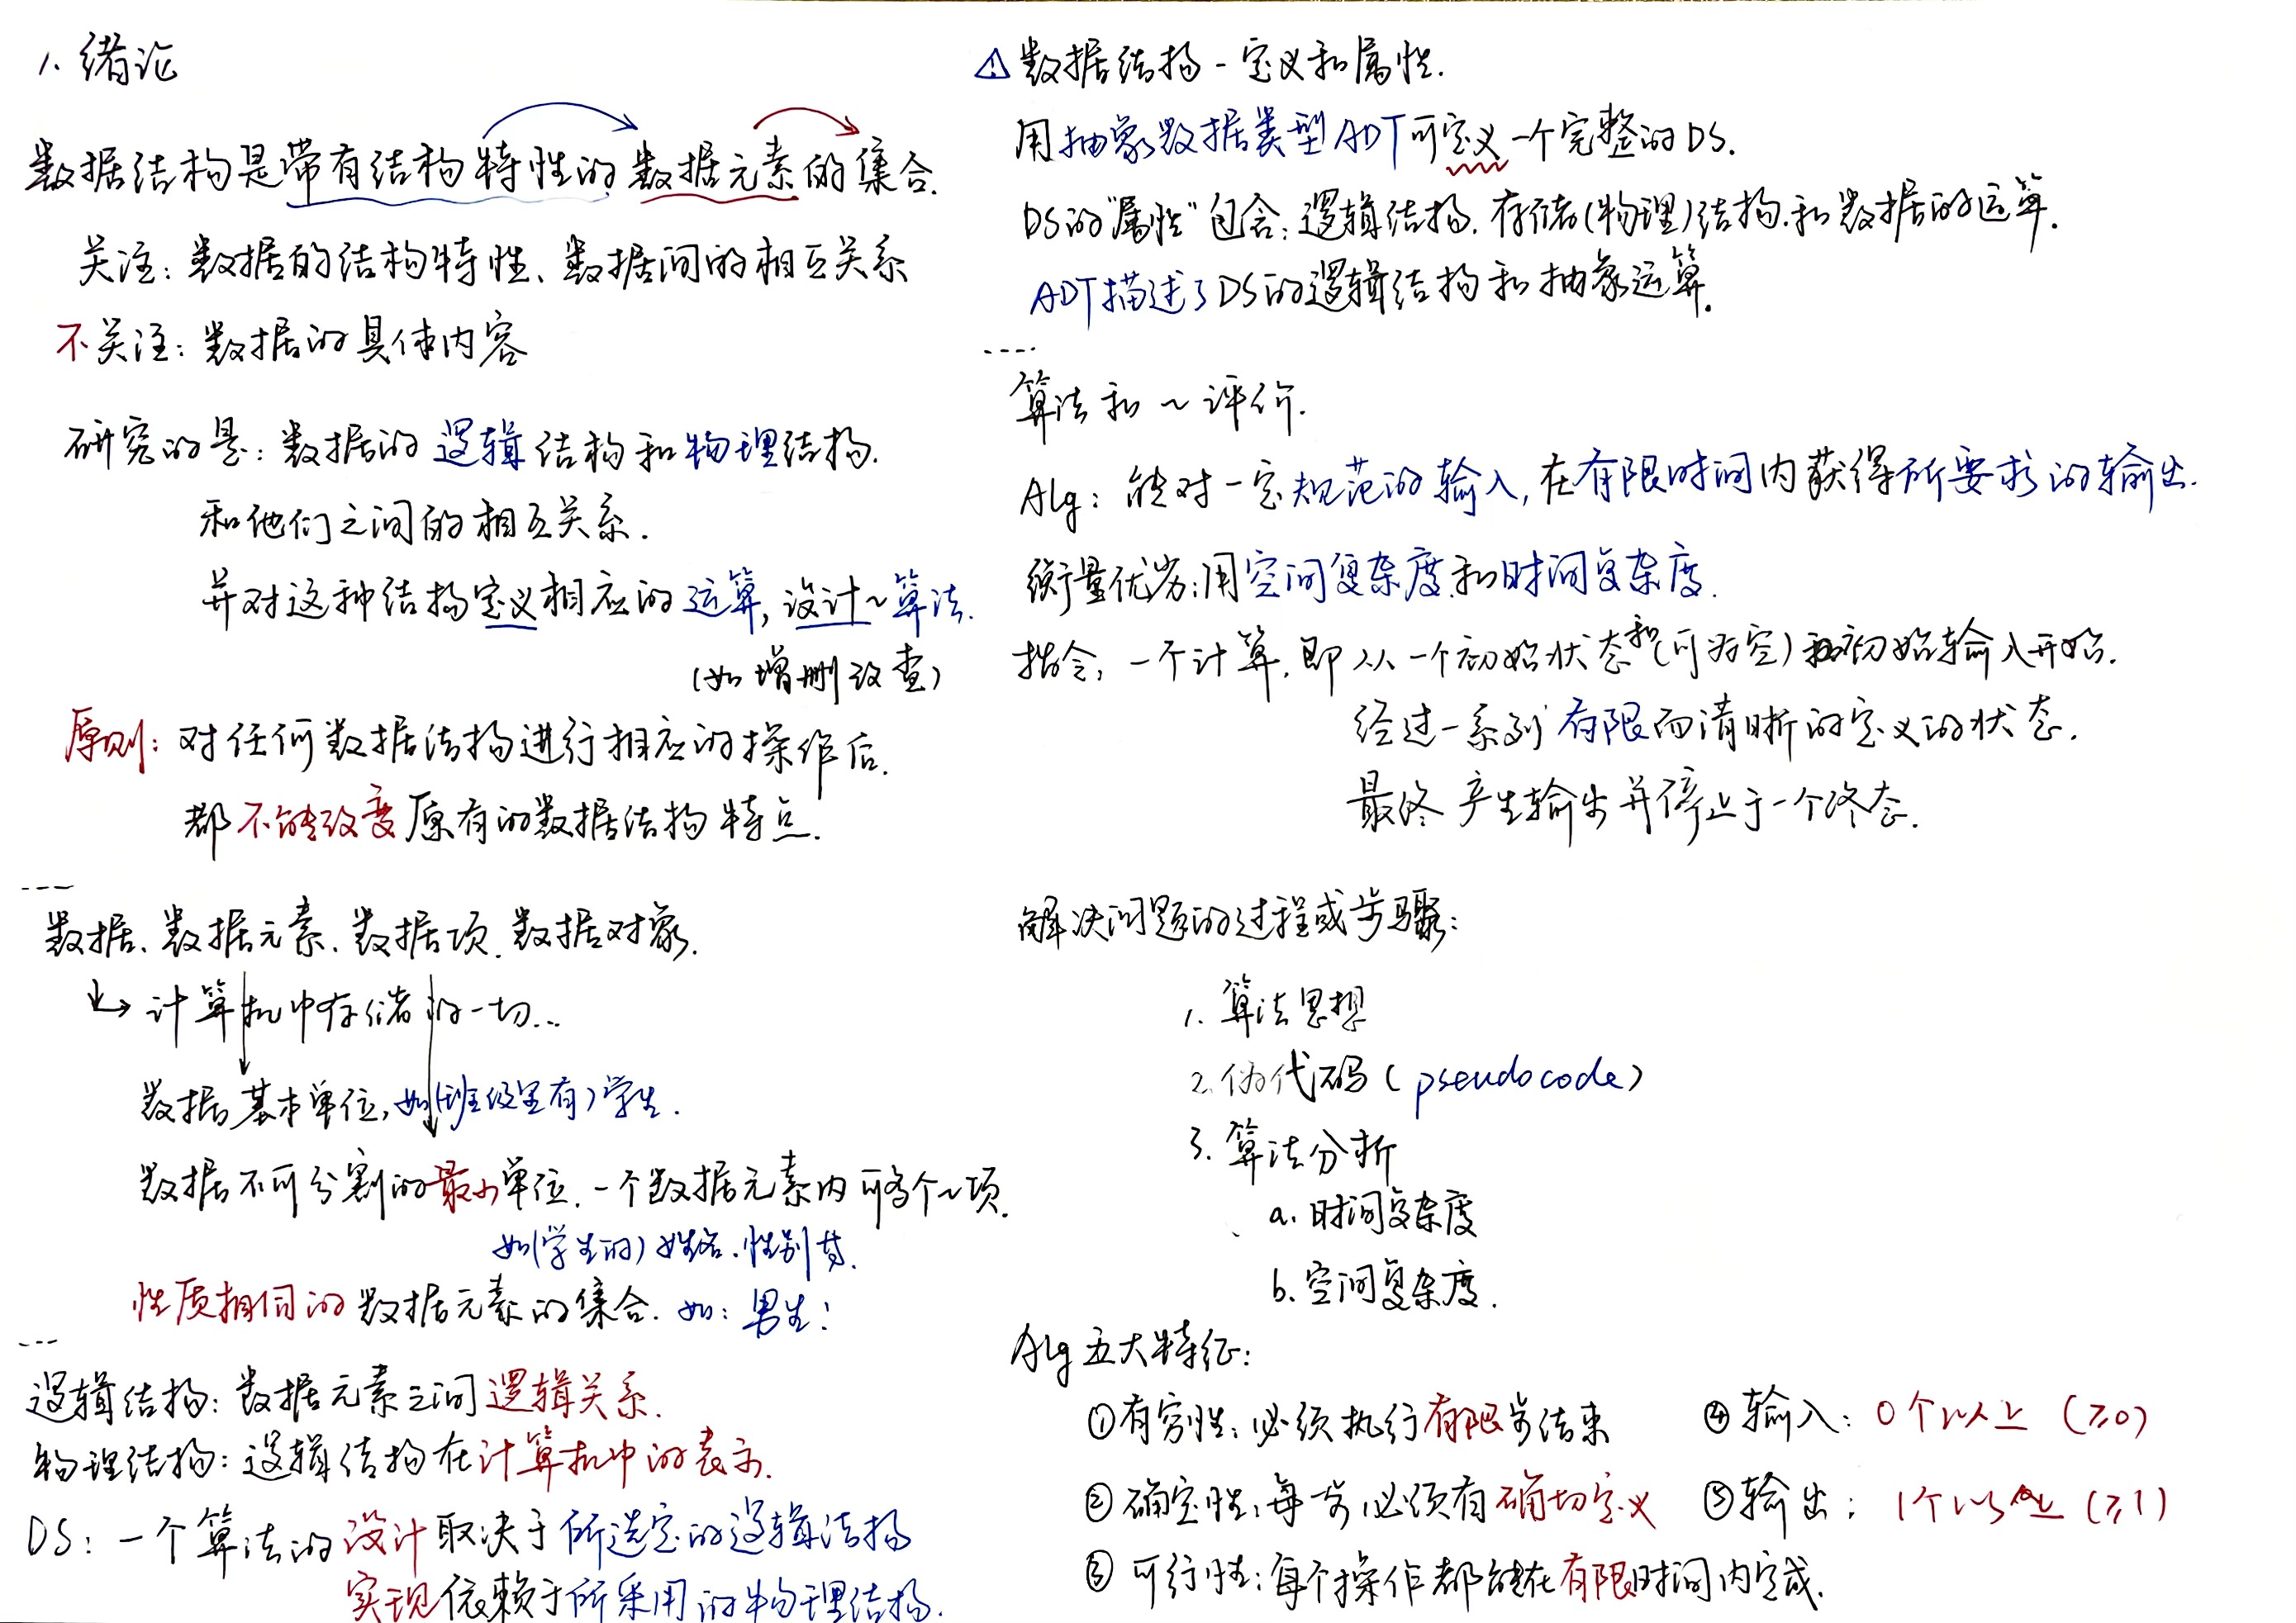 1. 绪论
数据结构是带有结构特性的数据元素的集合.
关注: 数据的结构特性、数据间的相互关系
不关注: 数据的具体内容
研究的是: 数据的逻辑结构和物理结构.
和他们之间的相互关系.
并对这种结构定义相应的运算, 设计~算法.
(如增删改查)
原则: 对任何数据结构进行相应的操作后.
都不能改变原有的数据结构特点.
---
数据、数据元素、数据项、数据对象.
↳→ 计算机中存储的一切...
数据基本单位, 如(班级里有)学生.
数据不可分割的最小单位. 一个数据元素内可多个~项.
如(学生的)姓名、性别等.
性质相同的数据元素的集合. 如: 男生!
---
逻辑结构: 数据元素之间逻辑关系.
物理结构: 逻辑结构在计算机中的表示.
DS: 一个算法的设计取决于所选定的逻辑结构
实现依赖于所采用的物理结构.
⚠ 数据结构 - 定义和属性.
用抽象数据类型ADT可定义一个完整的DS.
DS的"属性"包含: 逻辑结构. 存储(物理)结构.和数据的运算.
ADT描述了DS的逻辑结构和抽象运算.
----
算法和~评价.
Alg: 能对一定规范的输入, 在有限时间内获得所要求的输出.
衡量优劣: 用空间复杂度和时间复杂度.
指令, 一个计算. 即从一个初始状态和(可为空)初始输入开始.
经过一系列有限而清晰的定义的状态.
最终产生输出并停止于一个终态.
解决问题的过程或步骤:
1. 算法思想
2. 伪代码 (pseudocode)
3. 算法分析
a. 时间复杂度
b. 空间复杂度.
Alg 五大特征:
①有穷性: 必须执行有限步结束
②确定性: 每步必须有确切定义
③ 可行性: 每个操作都能在有限时间内完成.
④输入: 0个以上 (≥0)
⑤输出: 1个以上 (≥1)